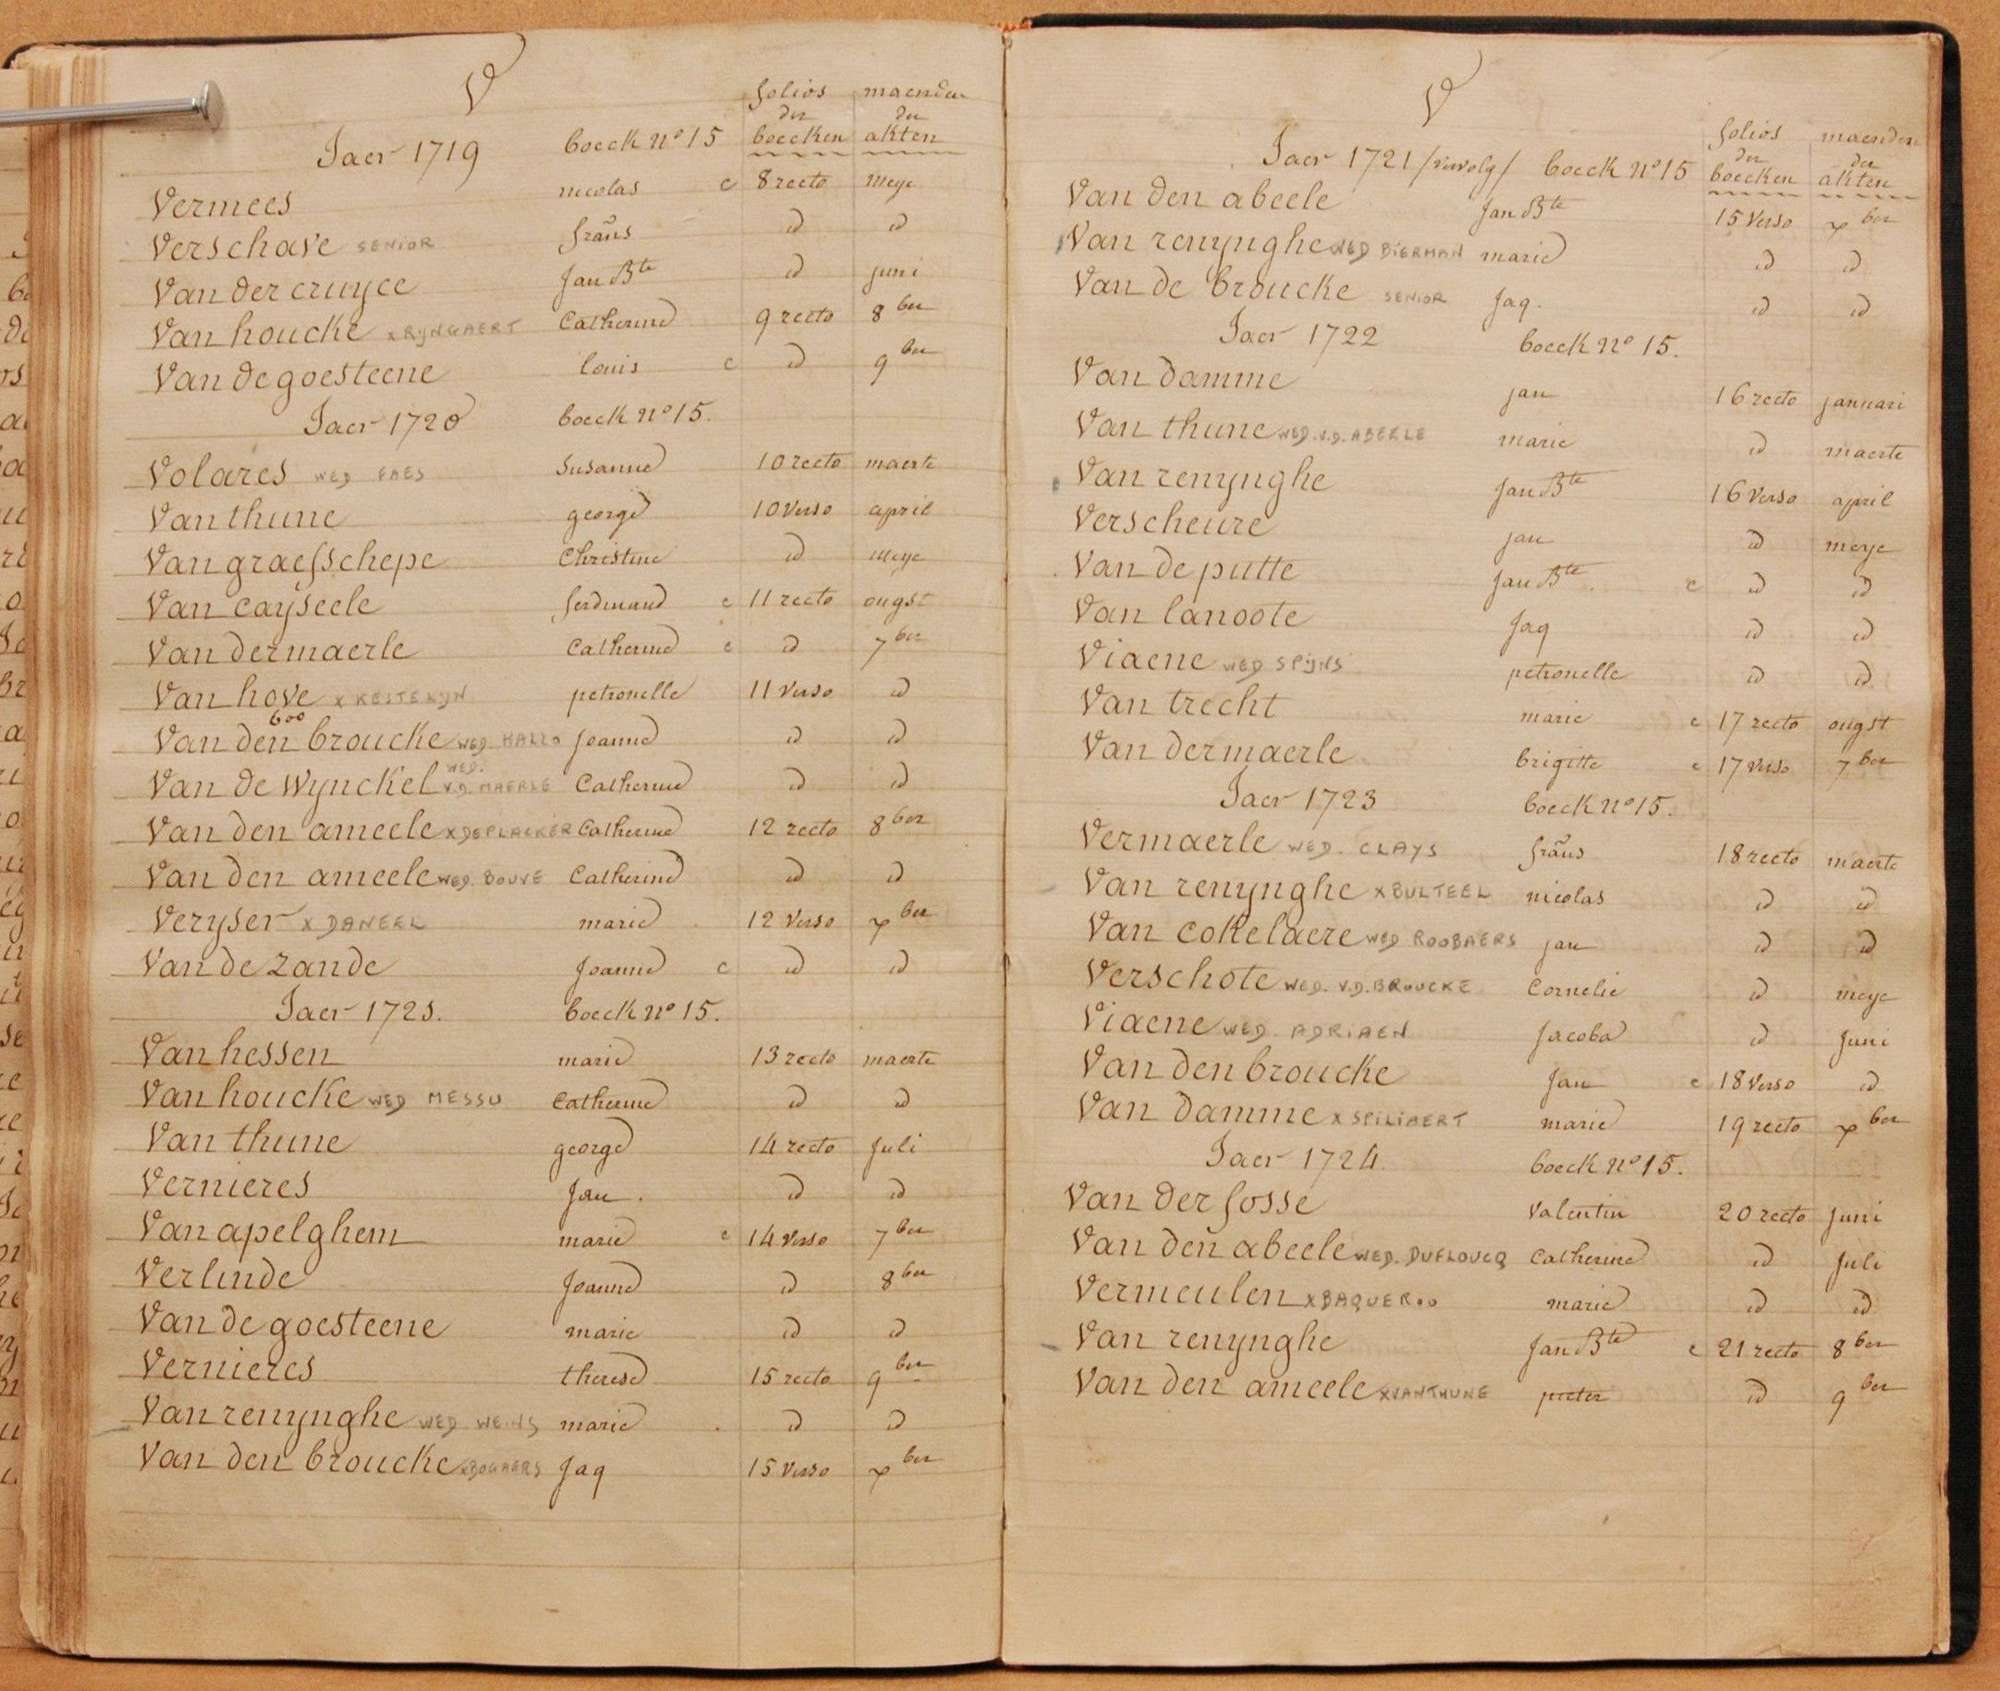 V
folios maenden
der der
Jaer 1719 boeck nº 15 boecken akten
Vermees nicolas c 8 recto meye
Verschave SENIOR frans id id
Van der cruyce Jan Bte id juni
Van houcke x RYNGAERT Catherine 9 recto 8ber
Van de goesteene louis c id 9ber
Jaer 1720 boeck nº 15.
Volares WED FAES Susanne 10 recto maerte
Van thune george 10 verso april
Van graefschepe Christine id meye
Van cayseele ferdinand c 11 recto ougst
Van dermaerle Catherine c id 7ber
Van hove x KESTEKYN petronelle 11 verso id
Van den broucke WED. HALLO Joanne id id
WED.
Van de Wynckel V.D. MAERLE Catherine id id
Van den ameele x DEPLACKER Catherine 12 recto 8ber
Van den ameele WED. BOUVE Catherine id id
Veryser x DANEEL marie 12 verso xber
Van de zande Joanne c id id
Jaer 1721. boeck nº 15.
Van hessen marie 13 recto maerte
Van houcke WED MESSU Catherine id id
Van thune george 14 recto Juli
Vernieres Jan . id id
Van apelghem marie c 14 verso 7ber
Verlinde Joanne id 8ber
Van de goesteene marie id id
Vernieres therese 15 recto 9ber
Van renynghe WED marie . id id
Van den broucke x BOGAERS Jaq 15 verso xber
V
folios maenden
der der
Jaer 1721 /vervolg/ boeck nº 15 boecken akten
Van den abeele Jan Bte 15 verso xber
Van renynghe WED BIERMAN marie id id
Van de broucke SENIOR Jaq. id id
Jaer 1722 boeck nº 15.
Van damme jan 16 recto januari
Van thune WED. V.D. ABEELE marie id maerte
Van renynghe Jan Bte 16 verso april
Verscheure jan id meye
Van de putte Jan Bte . c id id
Van lanoote Jaq id id
Viaene WED SPIJNS petronelle id id
Van trecht marie c 17 recto ougst
Van dermaerle brigitte c 17 verso 7ber
Jaer 1723 boeck nº 15.
Vermaerle WED. CLAYS frans 18 recto maerte
Van renynghe x BULTEEL nicolas id id
Van cokelaere WED ROOBAERS jan id id
Verschote WED. V.D. BROUCKE Cornelie id meye
Viaene WED. ADRIAEN Jacoba id Juni
Van den broucke Jan c 18 verso id
Van damme x SPILIAERT marie 19 recto xber
Jaer 1724. boeck nº 15.
Van der fosse Valentin 20 recto Juni
Van den abeele WED. DUFLOUCQ Catherine id Juli
Vermeulen marie id id
Van renynghe Jan Bte c 21 recto 8ber
Van den ameele x VANTHUNE pieter id 9ber